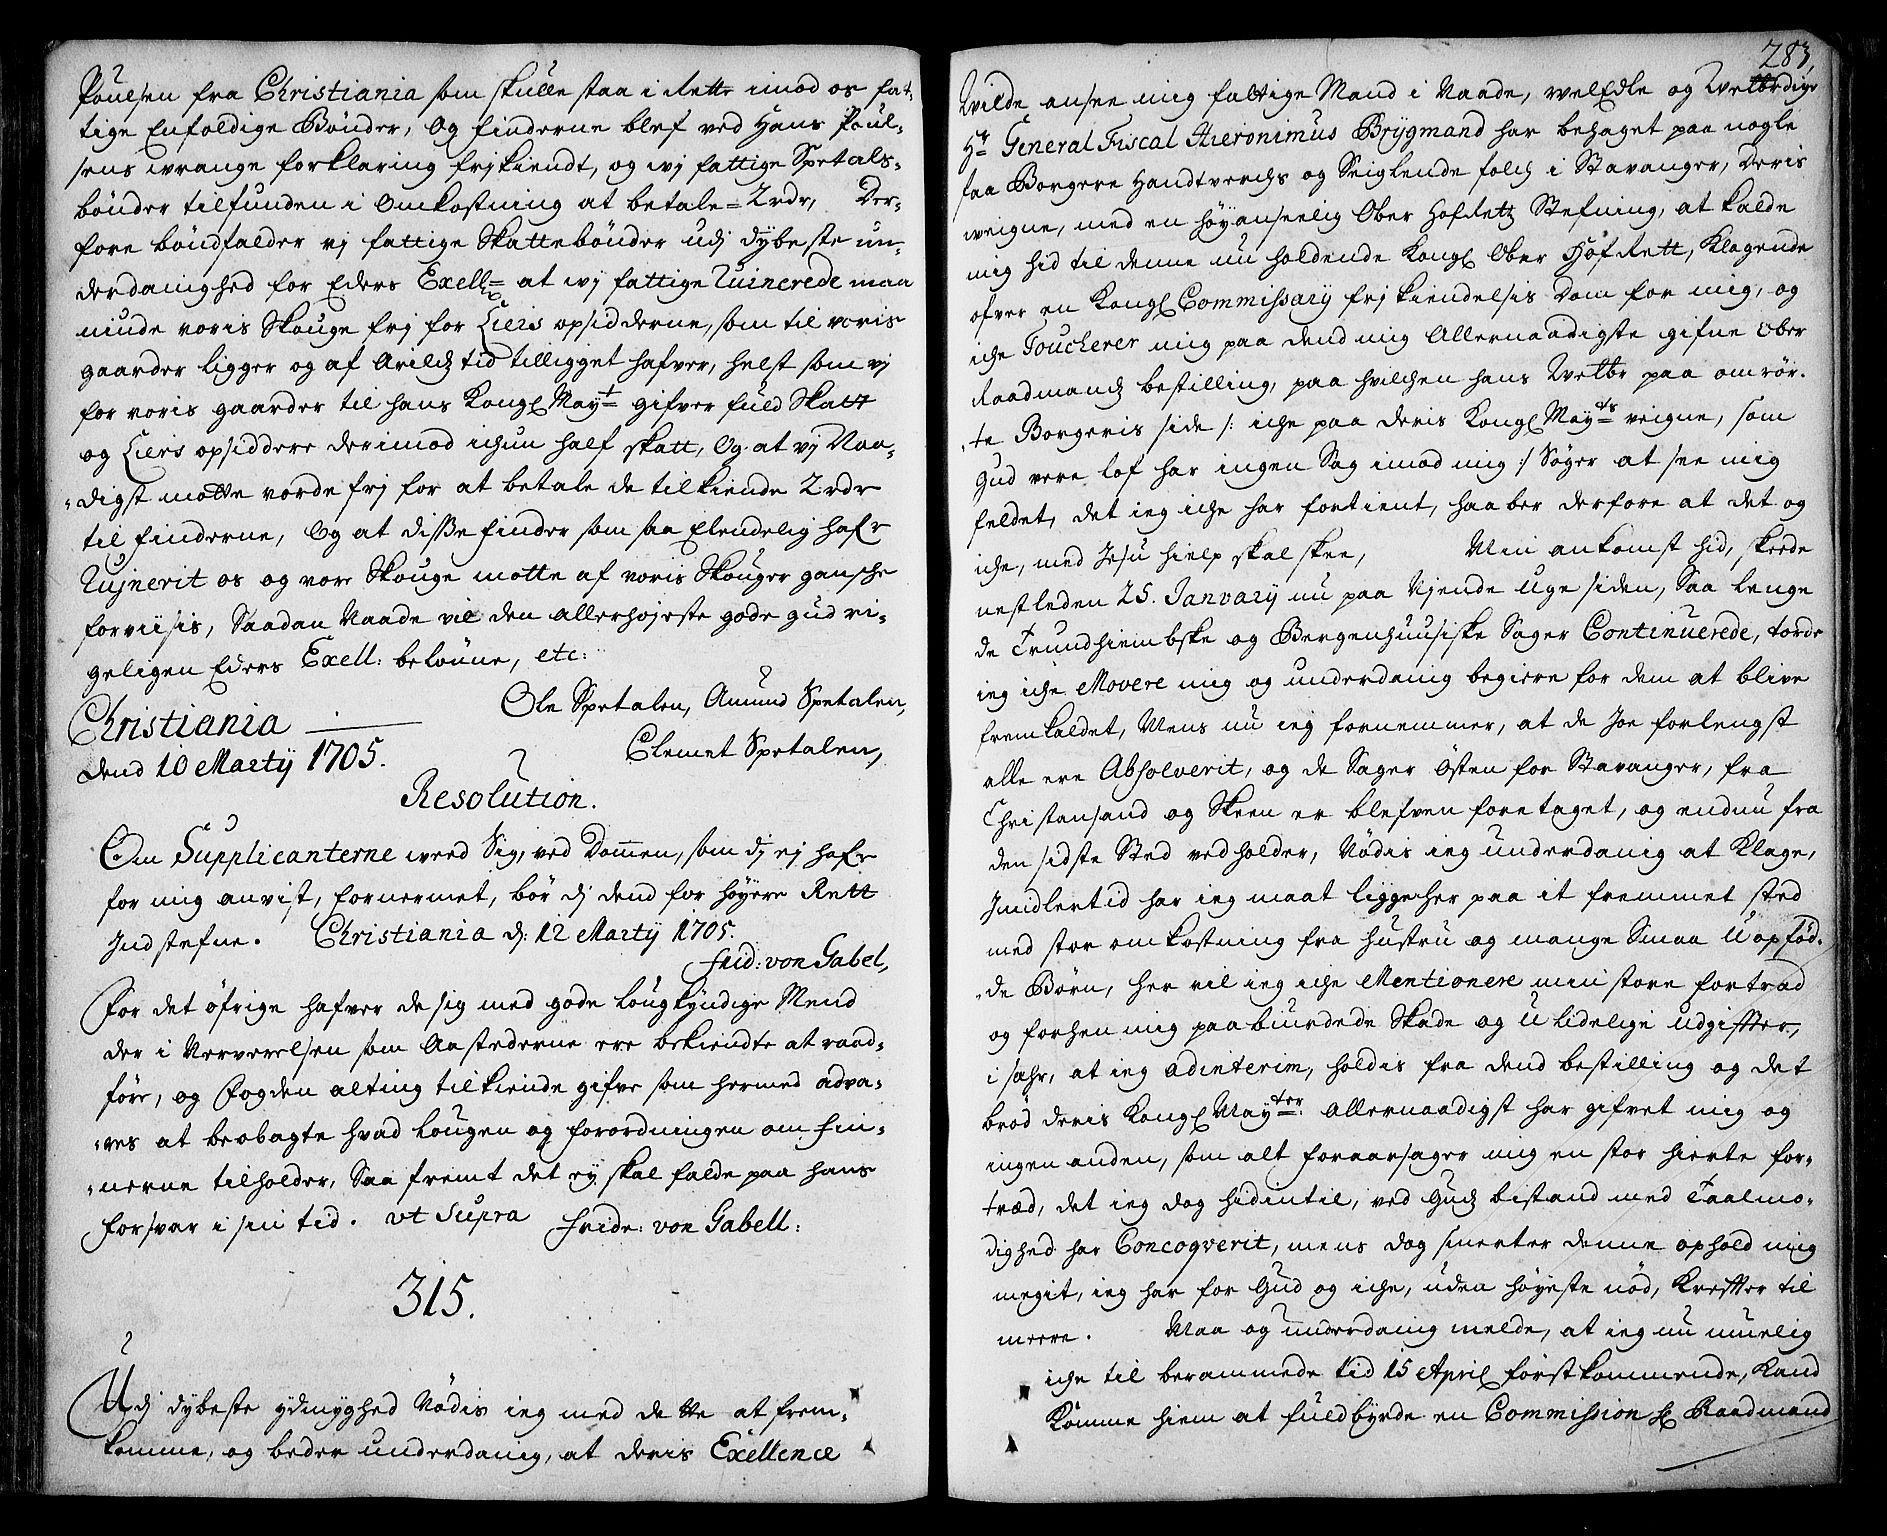 Poulsen fra Christiania som skulle staa i Rette imod os fat-
tige Enfoldige Bönder, Og finderne blef ved Hans Poul-
sens wrange forklaring frjkiendt, og wj fattige Spetals-
bönder tilfunden i Omkostning at betale 2 rdr, Der-
fore böndfalder vj fattige Skattebönder udj dybeste un-
derdanighed for Eders Exell: at wj fattige Ruinerede maa
niude voris Skouge frj for Liers opsidderne, som til voris
gaarder ligger og af Arilds tid tilligget hafver, helst som vj
for voris gaarder til hans Kongl Mayt gifver fuld Skatt
og Liers opsiddere derimod ichun half skatt, Og at vj Naa-
digst motte vorde frj for at betale de tilkiende 2 rdr
til finderne, Og at disse finder som saa Elendelig hafr
Rujnerit os og vore Skouge motte af voris Skouger gansche
forviisis, Saadan Naade vil den allerhöjeste gode gud ri-
geligen Eders Exell: belönne, etc:
Ole Spetalen, Amund Spetalen,
Christiania
Clemet Spetalen,
dend 10 Martij 1705.
Resolution.
Om Supplicanterne weed Sig, ved Dommen, som dj ej hafr
for mig anvist, fornermet, bör dj dend for höyere Rett
Indstefne. Christiania d: 12 Martij 1705.
Frid: von Gabel,
For det öfrige hafver de sig med gode Lougkyndige Mend
der i Nerverelsen som Aastederne ere bekiendte at raad-
före, og Fogden alting tilkiende gifve som hermed adva-
res at beobagte hvad Lougen og forordningen om fin-
nerne tilholder, Saa fremt det ey skal falde paa hans
forsvar i sin tid. vt Supra Fride: von Gabell:
315.
Udj dybeste ydmyghed Nödis ieg med dette at frem-
komme, og beder underdanig, at deris Exellence
283,
Wilde ansee mig fattige Mand i Naade, welEdle og Welbrdige
Hr General Fiscal Hieronimus Brÿgmand har behaget paa nogle
faa Borgere Handtverchs og Seiglende folch i Stavanger, Deris
weigne, med en höyanseelig Ober Hofretz Stefning, at kalde
mig hid til denne nu holdende Kongl Ober Hof Rett, Klagende
ofver en Kongl Commissary frj kiendelsis Dom for mig, og
iche Toucherer mig paa dend mig Allernaadigste gifne Ober
Raadmands bestilling, paa hvilchen hans Welbr paa omrör-
te Borgeris side /: iche paa deris Kongl Mayts veigne, som
Gud vere lof har ingen Sag imod mig :/ Söger at see mig
feldet, det ieg iche har fortient, haaber derfore at det og
iche, med Jesu hielp skal skee, Min ankomst hid, skeede
nestleden 25. January nu paa Njende Uge siden, Saa lenge
de Trundhiembske og Bergenhuusiske Sager Continuerede, torde
ieg iche Movere mig og underdanig begiere for dem at blive
fremkaldet, Mens nu ieg fornemmer, at de Joe forlengst
alle ere Absolverit, og de Sager Östen for Stavanger, fra
Christansand og Skeen er blefven foretaget, og endnu fra
den sidste Sted vedholder, Nödis ieg underdanig at Klage,
Imidlertid har ieg maat liggeher paa it fremmet sted
med stor omkostning fra hustru og mange Smaa Uopföd-
de Börn, her vil ieg iche Mentionere min store fortred
og forhen mig paabiurdede Skade og Ulidelige udgifter,
i sær, at ieg adinterim, holdis fra dend bestilling og det
bröd deris Kongl Mayter: allernaadigst har gifvet mig og
ingen anden, som alt foraarsager mig en stor hierte for-
træd, det ieg dog hidintil, ved Guds bistand med Taalmo-
dighed har Concoqverit, mens dog smerter denne ophold mig
megit, ieg har for Gud og iche, uden höyeste nöd, Krefter til
meere. Maa og underdanig melde, at ieg nu muelig
iche til berammede tid 15 April förstkommende, Kand
Komme hiem at fuldbyrde en Commission Raadmand